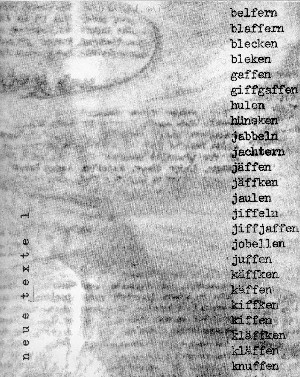 belfern
blaffern
blecken
bleken
gaffen
giffgaffen
hulen
hünsken
jabbeln
jachtern
jäffen
jäffken
jaulen
jiffeln
jiffjaffen
jobellen
juffen
käffken
käffen
kiffken
kiffen
kläffken
kläffen
knuffen
neue texte 1